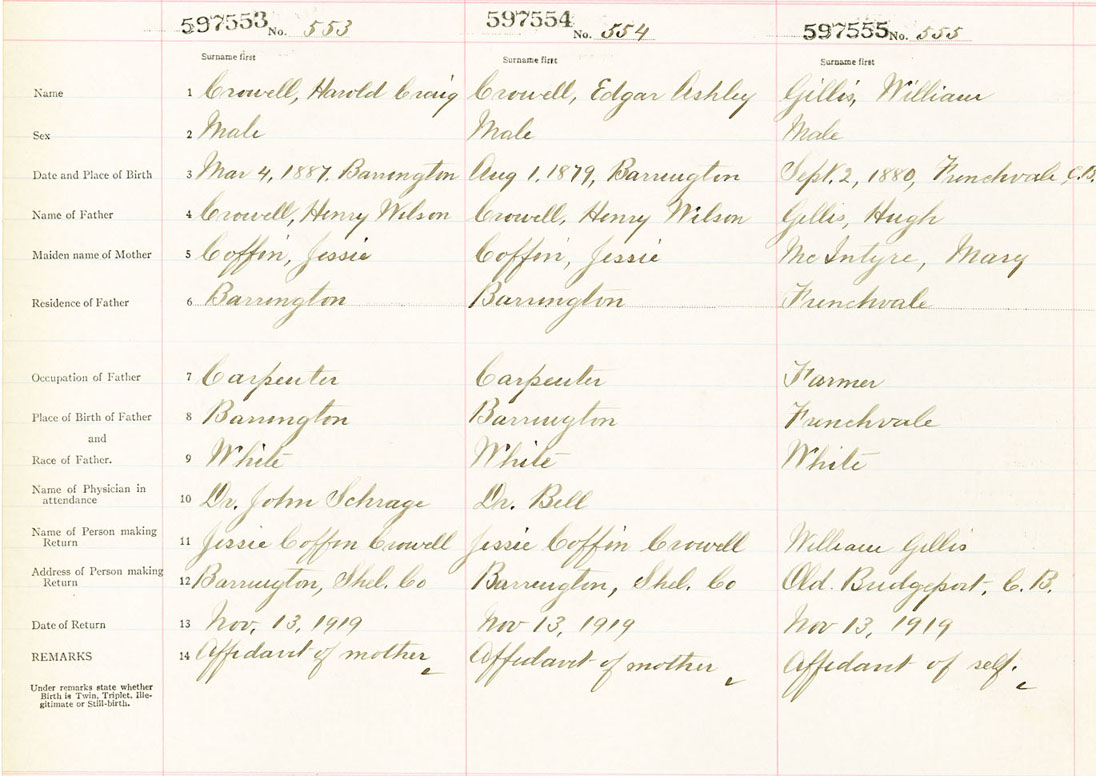 597553 No. 553 597554 No. 554 597555 No. 555
Surname first Surname first Surname first
Name 1 Crowell, Harold Craig Crowell, Edgar Ashley Gillis, William
Sex 2 Male Male Male
Date and Place of Birth 3 Mar 4, 1887. Barrington Aug 1, 1879, Barrington Sept. 2, 1880, Frenchvale, C.B.
Name of Father 4 Crowell, Henry Wilson Crowell, Henry Wilson Gillis, Hugh
Maiden name of Mother 5 Coffin, Jessie Coffin, Jessie McIntyre, Mary
Residence of Father 6 Barrington Barrington Frenchvale
Occupation of Father 7 Carpenter Carpenter Farmer
Place of Birth of Father 8 Barrington Barrington Frenchvale
and
Race of Father. 9 White White White
Name of Physician in
attendance 10 Dr. John Schrage Dr. Bell
Name of Person making
Return 11 Jessie Coffin Crowell Jessie Coffin Crowell William Gillis
Address of Person making
Return 12 Barrington, Shel. Co Barrington, Shel. Co Old. Bridgeport, C.B.
Date of Return 13 Nov. 13, 1919 Nov 13, 1919 Nov 13, 1919
REMARKS 14 Affidavit of mother Affidavit of mother Affidavit of self.
Under remarks state whether
Birth is Twin, Triplet, Ille-
gitimate or Still-birth.